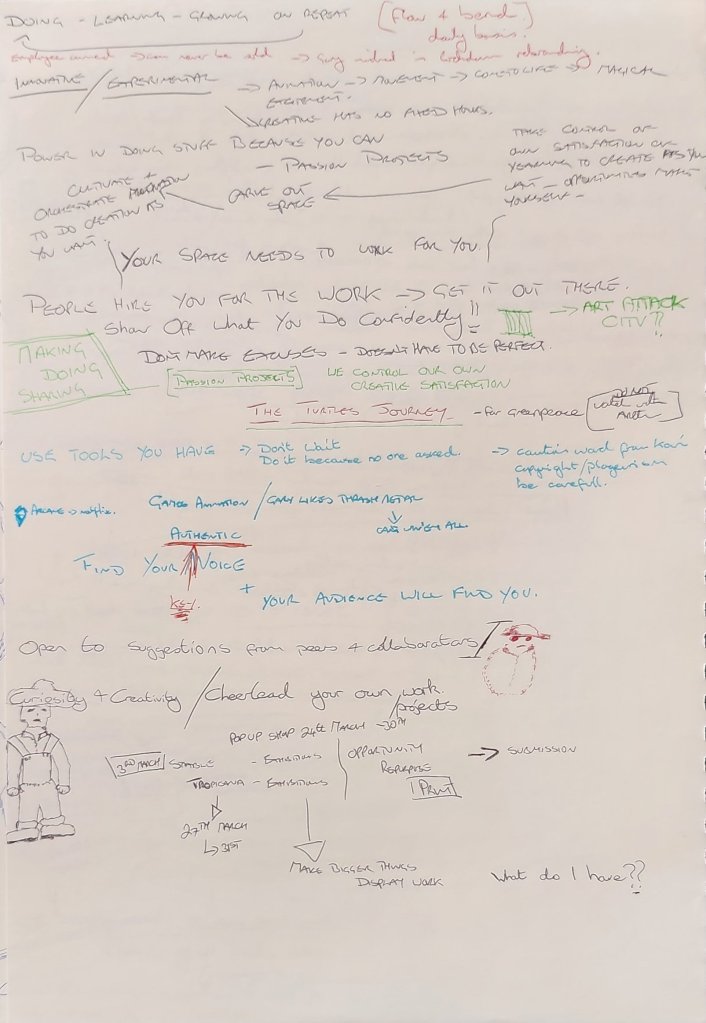 DOING - LEARNING - GROWING ON REPEAT [flow & bend.]
daily basis.
employee owned → can never be sold → Gary in lockdown rebranding.
INNOVATIVE / EXPERIMENTAL → ANIMATION → MOVEMENT → COME TO LIFE → MAGICAL
EXCITEMENT.
CREATIVE HAS NO FIXED HOURS.
POWER IN DOING STUFF BECAUSE YOU CAN
- PASSION PROJECTS
TAKE CONTROL OF
OWN SATISFACTION OF
YEARNING TO CREATE AS YOU
WAIT - OPPORTUNITIES MAKE
YOURSELF -
CARVE OUT
SPACE
CULTIVATE +
ORCHESTRATE
TO DO CREATION AS
YOU WANT.
YOUR SPACE NEEDS TO WORK FOR YOU.
PEOPLE HIRE YOU FOR THE WORK → GET IT OUT THERE.
Show Off what You Do Confidently!! → ART ATTACK
CITV??
MAKING
DOING
SHARING
DON'T MAKE EXCUSES - DOESN'T HAVE TO BE PERFECT.
[PASSION PROJECTS] WE CONTROL OUR OWN
CREATIVE SATISFACTION
THE TURTLES JOURNEY - for Greenpeace [DO NOT
watch with
]
USE TOOLS YOU HAVE → Don't Wait
Do it because no one asked.
→ caution word from
copyright/plagerism
be carefull.
ARCANE → netflix.
GAMES ANIMATION / GARY LIKES THRASH METAL
ALL.
AUTHENTIC
FIND YOUR VOICE
KEY.
+ YOUR AUDIENCE WILL FIND YOU.
Open to suggestions from peers & collaborators
Curiosity & Creativity / Cheerlead your own work.
projects
POP UP SHOP 24TH MARCH - 30TH
3RD MARCH STABLE - EXHIBITIONS
TROPICANA - EXHIBITIONS
OPPORTUNITY
REPURPOSE
PRINT
→ SUBMISSION
27TH MARCH
↳ 31ST
MAKE BIGGER THINGS
DISPLAY WORK
What do I have??